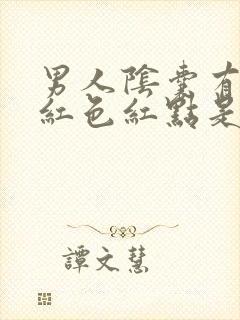 男人陰囊有
紅色紅點是
譚文慧